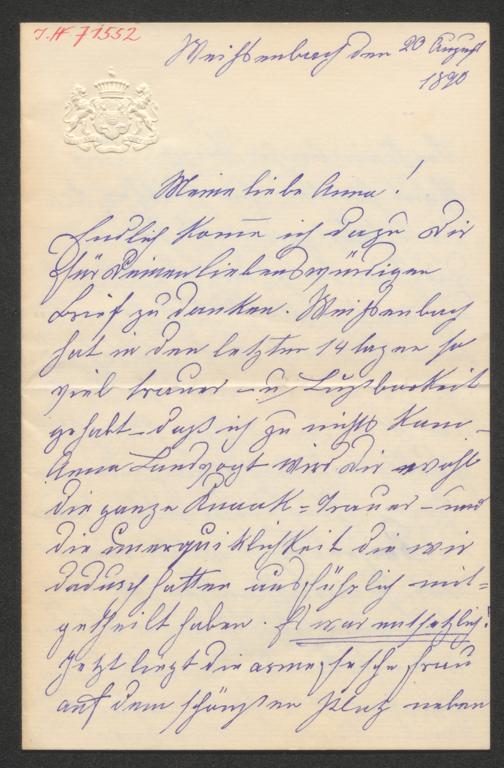 J.N 71552
Weißenbach den 20 August
1890
Meine liebe Anna!
Endlich kom̅e ich dazu Dir
für Deinen liebenswürdigen
Brief zu danken. Weißenbach
hat in den letzten 14 tagen so
viel trauer – u
gehabt – daß ich zu nichts kam –
Anna Landvogt wird Dir wohl
die ganze Knaak = Trauer – und
die unerquiklichkeit die wir
dadurch hatten ausführlich mit=
getheilt haben. Es war entsetzlich!
Jetzt liegt die arme fesche Frau
auf dem schönsten Platz neben